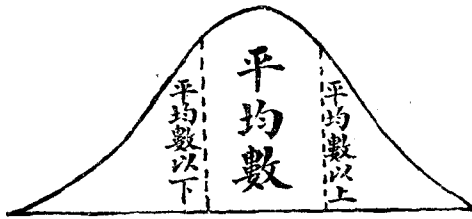 平均數以下
平均數
平均數以上